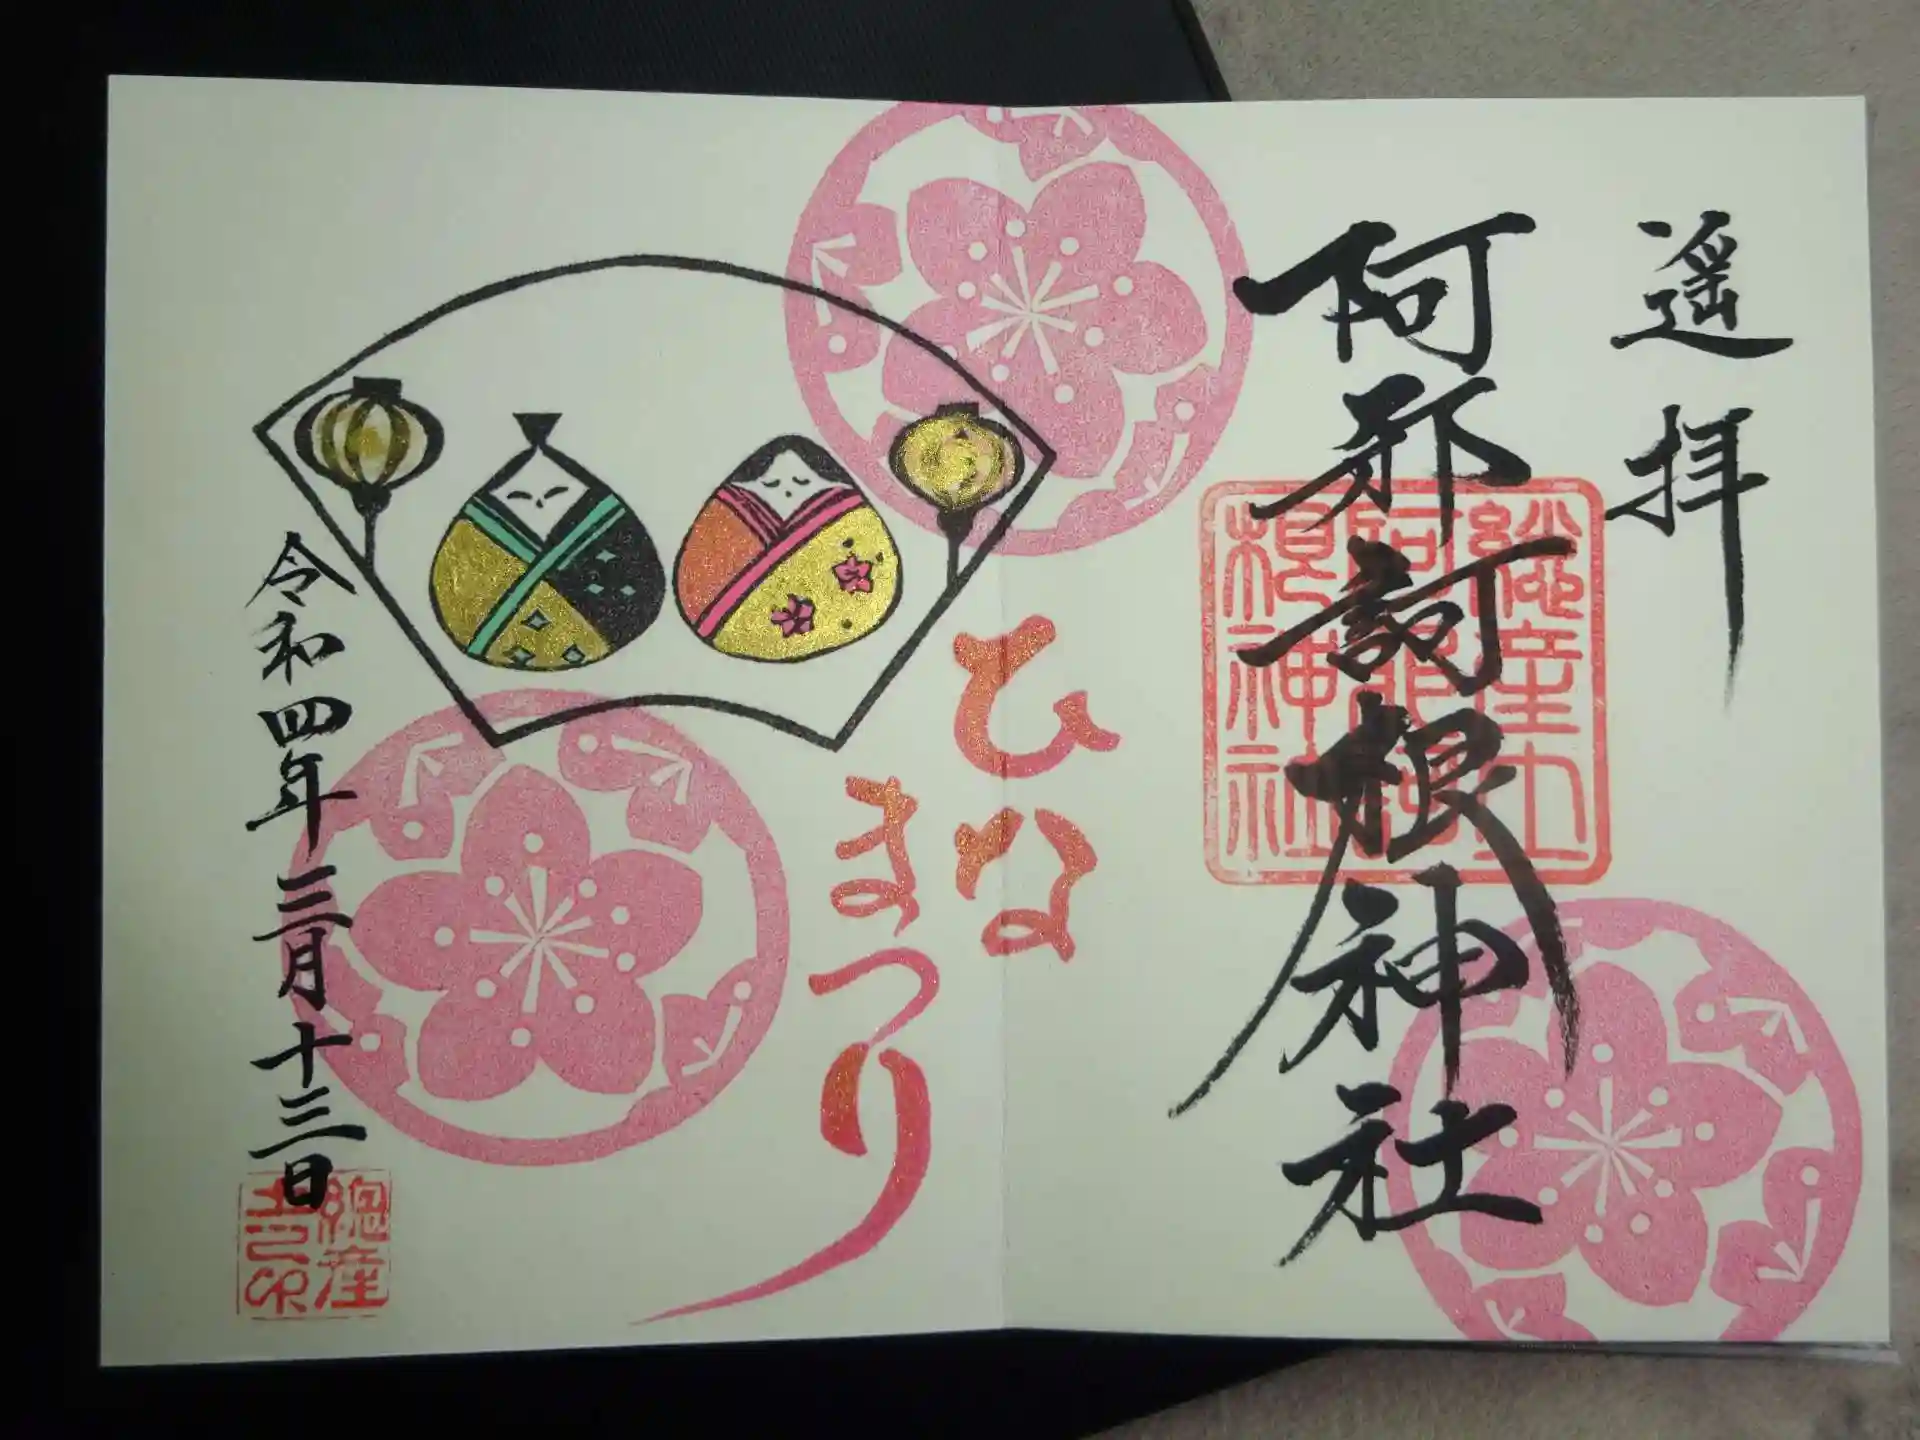 遥拝
阿邪訶根神社
総産土
阿邪訶
根神社
ひな
まつり
令和四年三月十三日
總産
土之印